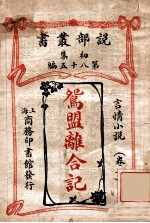 說部叢書
初集
第八十五編
言情小說
鴛盟離合記
上海
商務印書館發行